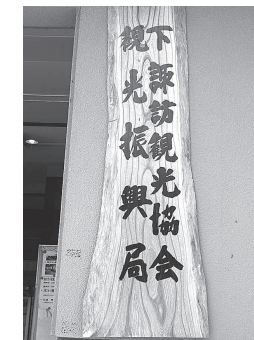 下諏訪観光協会
観光振興局